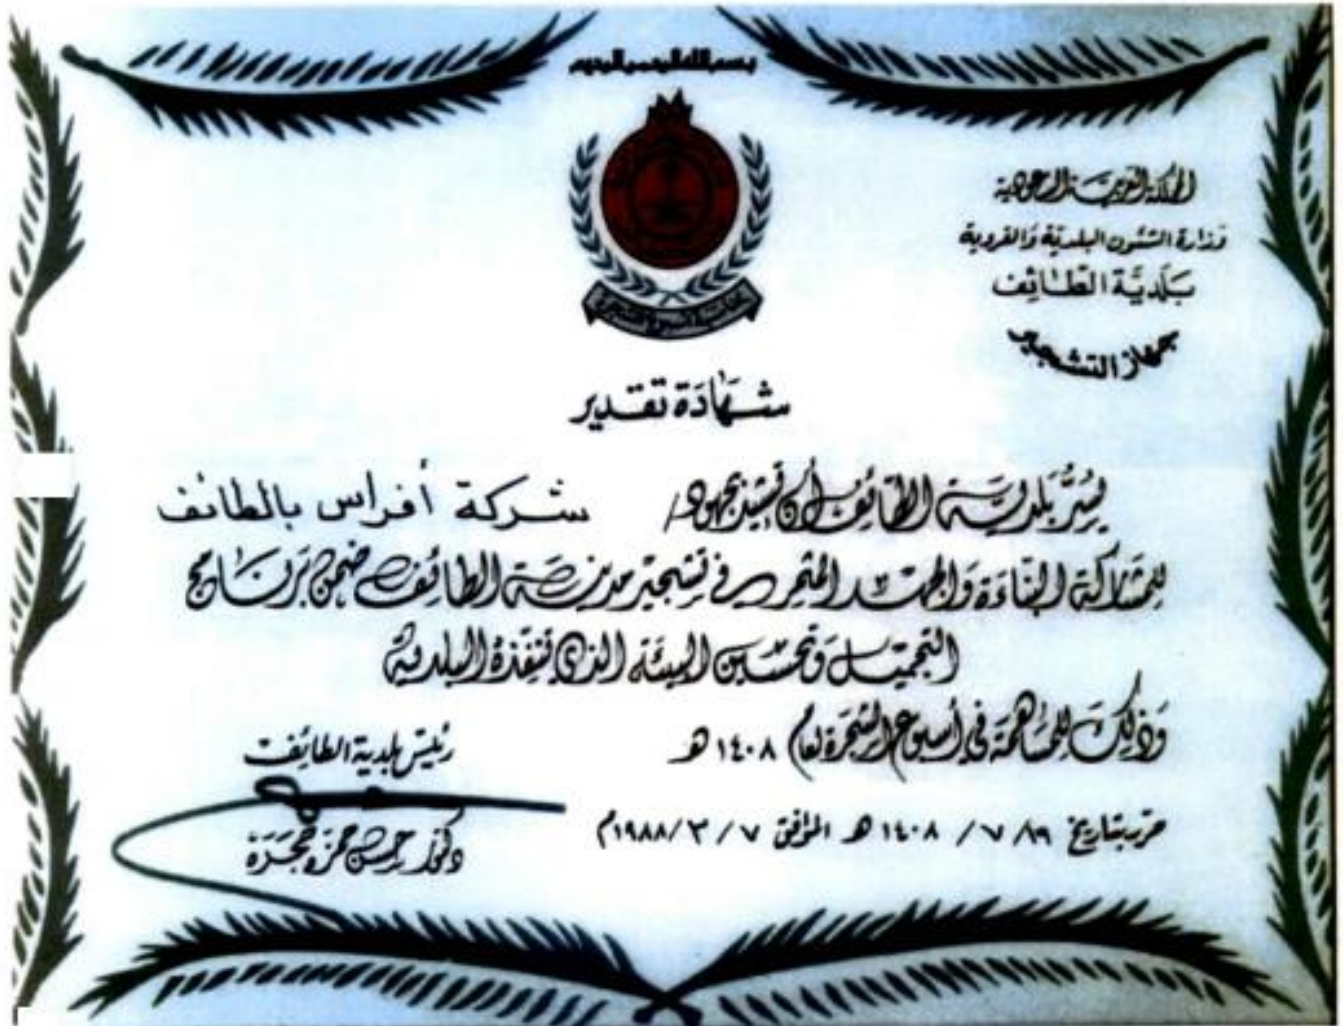 بسم الله الرحمن الرحيم
المملكة العربية السعودية
وزارة الشئون البلدية والقروية
بَلَديَّة الطَّائِف
جهاز التشجير
شهَادَة تقدير
يسُرُّ بَلديَّة الطَّائف أن تشيد بجهود / شركة أفراس بالطائف
للمشاركة البنّاءة وَالجهد المثمر في تشجير مدينة الطائف ضمن برنامج
التجميل وَتحسين البيئة الذي تنفذه البلدية
وَذلك للمساهمة في أسبوع الشجرة لعام ١٤٠٨ هـ
حرر بتاريخ ١٩/ ٧ / ١٤٠٨ هـ الموافق ٧ / ٣ /١٩٨٨م
رئيس بلدية الطائف
دكتور حسن حمزة حجرة